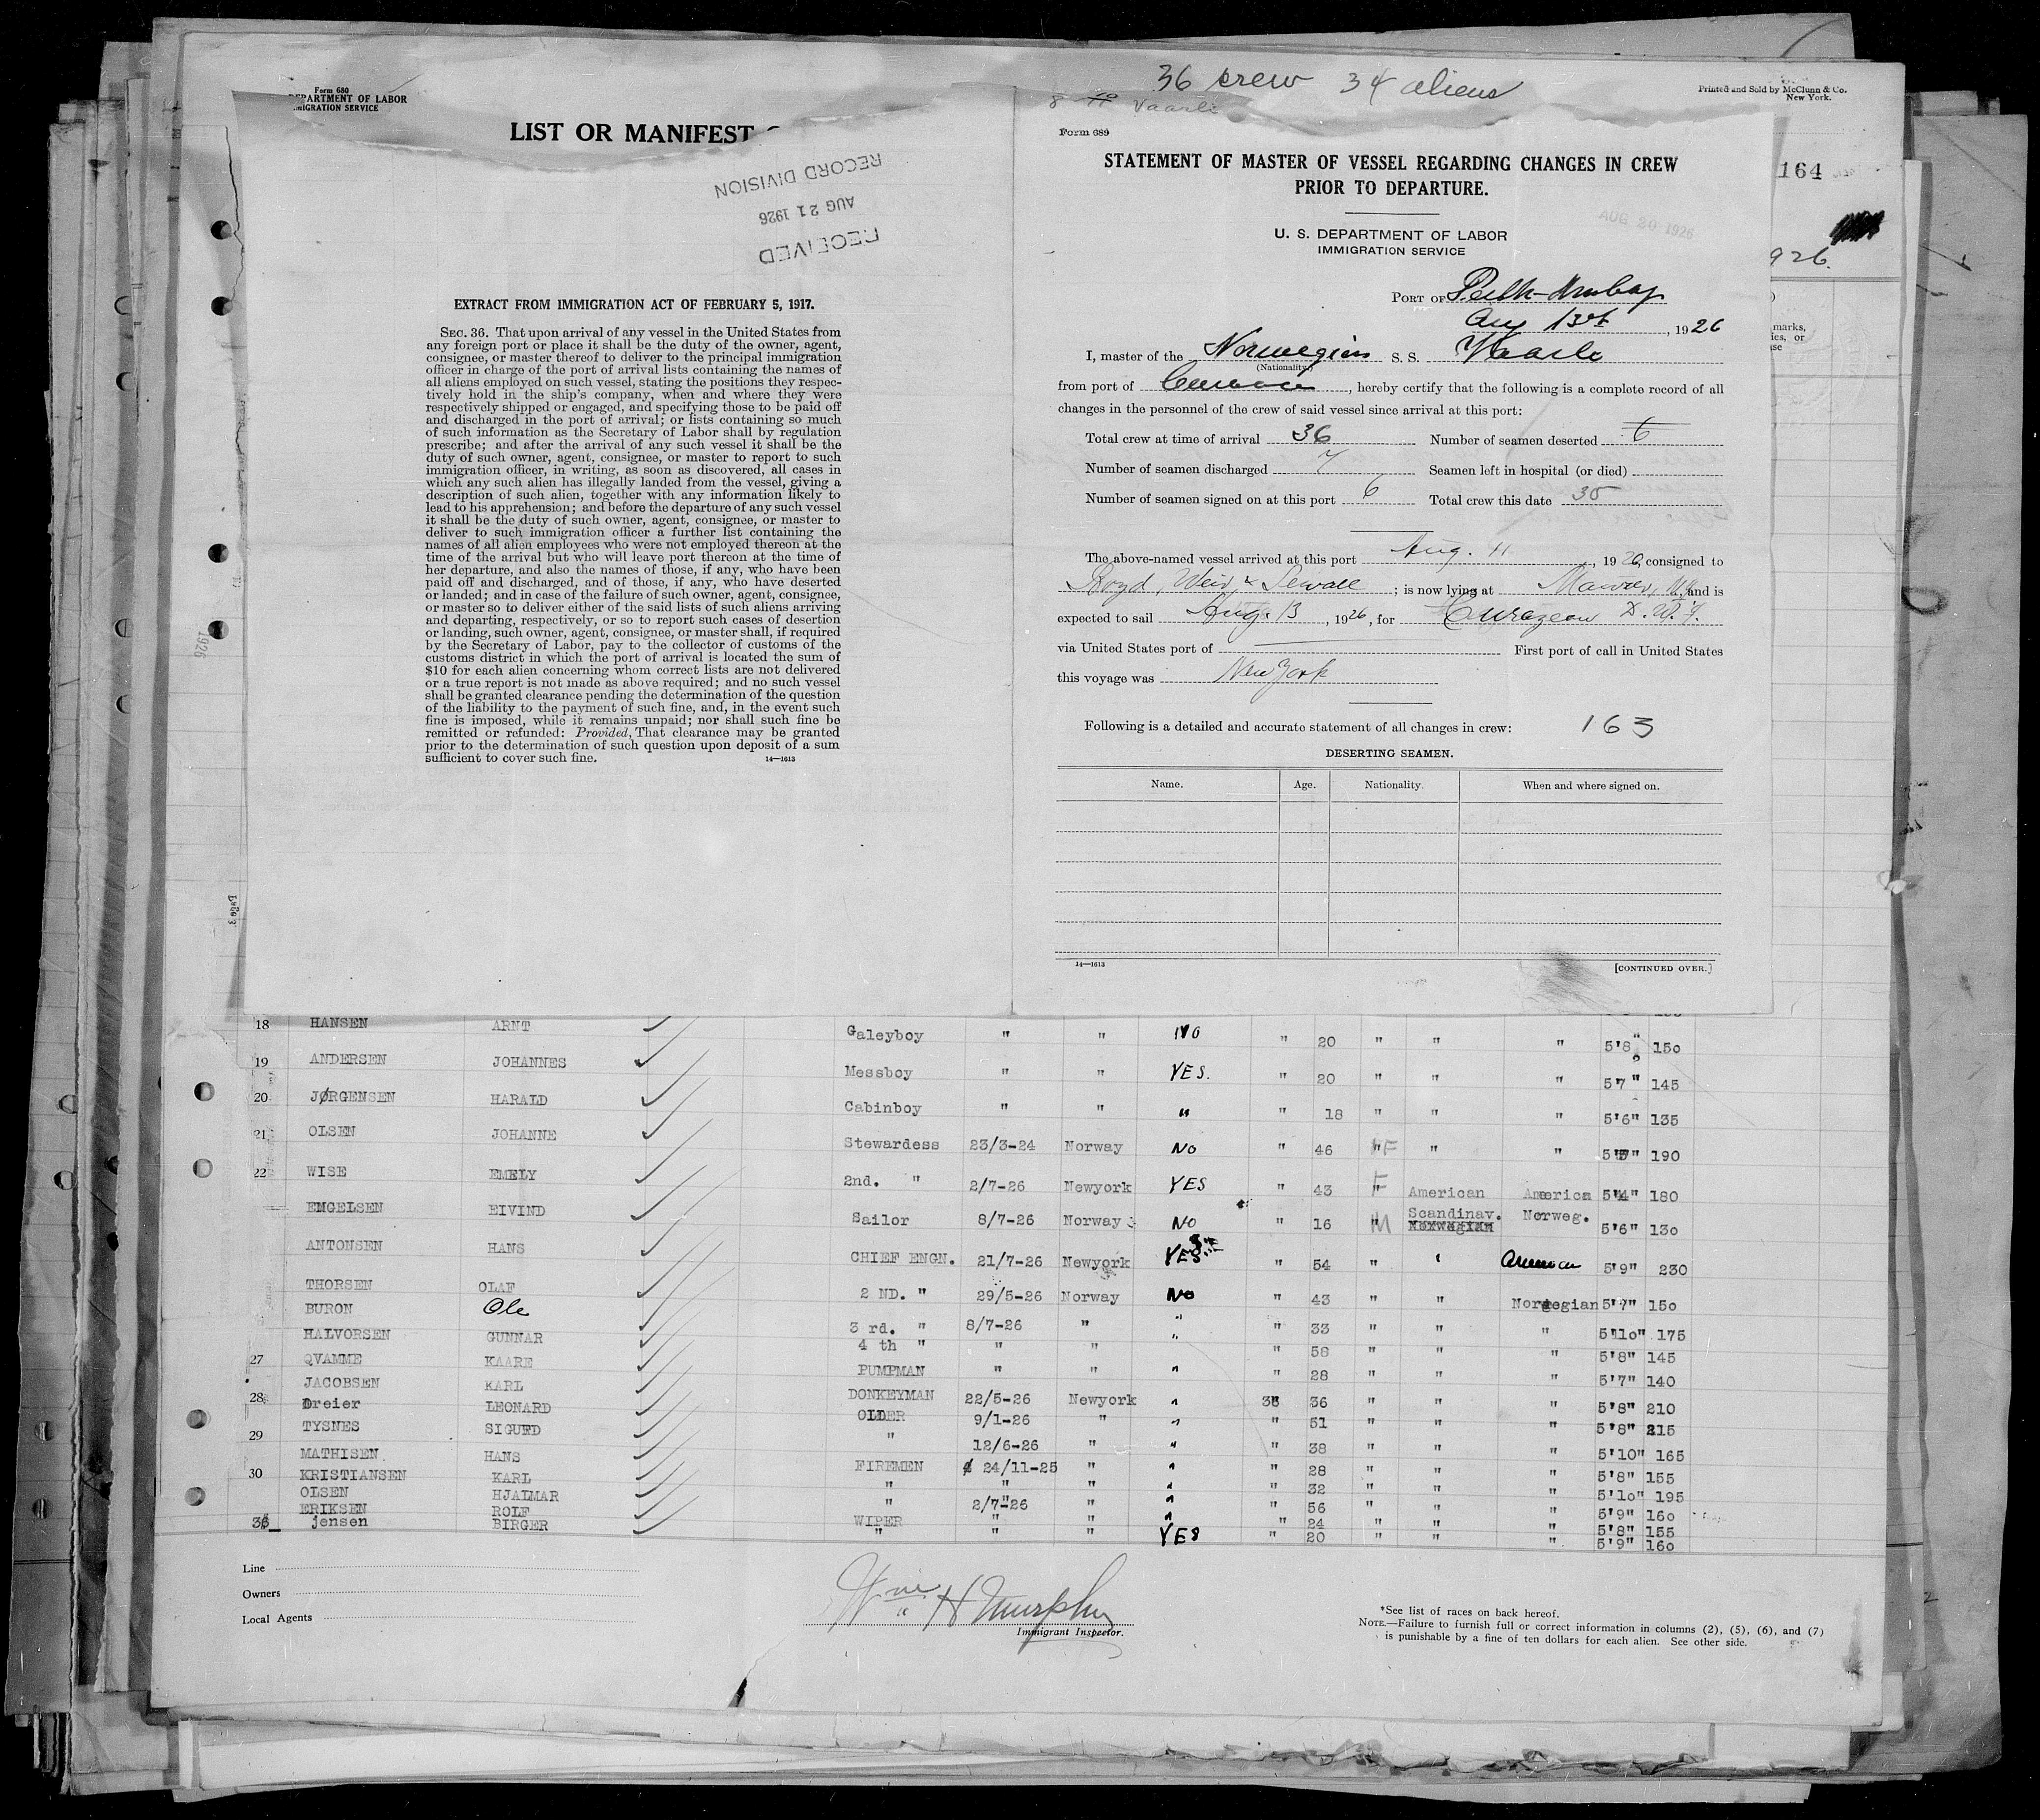 36 crew 34 aliens
Vaarli
Form 680
DEPARTMENT OF LABOR
IMMIGRATION SERVICE
Printed and Sold by McClunn & Co.
New York.
LIST OR MANIFEST
RECORD DIVISION
AUG 21 1926
RECEIVED
EXTRACT FROM IMMIGRATION ACT OF FEBRUARY 5, 1917.
SEC. 36. That upon arrival of any vessel in the United States from
any foreign port or place it shall be the duty of the owner, agent,
consignee, or master thereof to deliver to the principal immigration
officer in charge of the port of arrival lists containing the names of
all aliens employed on such vessel, stating the positions they respec-
tively hold in the ship's company, when and where they were
respectively shipped or engaged, and specifying those to be paid off
and discharged in the port of arrival; or lists containing so much
of such information as the Secretary of Labor shall by regulation
prescribe; and after the arrival of any such vessel it shall be the
duty of such owner, agent, consignee, or master to report to such
immigration officer, in writing, as soon as discovered, all cases in
which any such alien has illegally landed from the vessel, giving a
description of such alien, together with any information likely to
lead to his apprehension; and before the departure of any such vessel
it shall be the duty of such owner, agent, consignee, or master to
deliver to such immigration officer a further list containing the
names of all alien employees who were not employed thereon at the
time of the arrival but who will leave port thereon at the time of
her departure, and also the names of those, if any, who have been
paid off and discharged, and of those, if any, who have deserted
or landed; and in case of the failure of such owner, agent, consignee,
or master so to deliver either of the said lists of such aliens arriving
and departing, respectively, or so to report such cases of desertion
or landing, such owner, agent, consignee, or master shall, if required
by the Secretary of Labor, pay to the collector of customs of the
customs district in which the port of arrival is located the sum of
$10 for each alien concerning whom correct lists are not delivered
or a true report is not made as above required; and no such vessel
shall be granted clearance pending the determination of the question
of the liability to the payment of such fine, and, in the event such
fine is imposed, while it remains unpaid; nor shall such fine be
remitted or refunded: Provided, That clearance may be granted
prior to the determination of such question upon deposit of a sum
sufficient to cover such fine. 14—1613
Form 689
STATEMENT OF MASTER OF VESSEL REGARDING CHANGES IN CREW
PRIOR TO DEPARTURE.
164
U. S. DEPARTMENT OF LABOR
IMMIGRATION SERVICE
AUG 20 1926
926.
PORT OF Perth-Amboy
Aug 13th, 1926
marks,
ies, or
se
I, master of the Norwegian S. S. Vaarli
(Nationality.)
from port of Curacao, hereby certify that the following is a complete record of all
changes in the personnel of the crew of said vessel since arrival at this port:
Total crew at time of arrival 36 Number of seamen deserted 6
Number of seamen discharged 7 Seamen left in hospital (or died)
Number of seamen signed on at this port 6 Total crew this date 35
The above-named vessel arrived at this port Aug. 11, 1926, consigned to
Boyd, Weir, & Sewall; is now lying at Maurer, N.J. and is
expected to sail Aug. 13, 1926, for Curazeau D.W.I.
via United States port of First port of call in United States
this voyage was New York
Following is a detailed and accurate statement of all changes in crew: 163
DESERTING SEAMEN.
Name. Age. Nationality. When and where signed on.
14—1613 [CONTINUED OVER.]
1926
Page 3
18 HANSEN ARNT Galeyboy " " NO " 20 " " " 5'8" 150
19 ANDERSEN JOHANNES Messboy " " YES. " 20 " " " 5'7" 145
20 JØRGENSEN HARALD Cabinboy " " " " 18 " " " 5'6" 135
21 OLSEN JOHANNE Stewardess 23/3-24 Norway NO " 46 F " " 190
22 WISE EMELY 2nd. " 2/7-26 Newyork YES " 43 F American America 5'4" 180
ENGELSEN EIVIND Sailor 8/7-26 Norway NO " 16 M Scandinav. Norweg. 5'6" 130
ANTONSEN HANS CHIEF ENGN. 21/7-26 Newyork YES " 54 " " American 5'9" 230
THORSEN OLAF 2 ND. " 29/5-26 Norway NO " 43 " " Norwegian 5'7" 150
BURON Ole 3 rd. " 8/7-26 " " " 33 " " " 5'10" 175
HALVORSEN GUNNAR 4 th " " " " " 58 " " " 5'8" 145
27 QVAMME KAARE PUMPMAN " " " " 28 " " " 5'7" 140
JACOBSEN KARL DONKEYMAN 22/5-26 Newyork " 36 " " " 5'8" 210
28 Dreier LEONARD OLDER 9/1-26 " " " 51 " " " 5'8" 215
TYSNES SIGURD " 12/6-26 " " " 38 " " " 5'10" 165
29
MATHISEN HANS FIREMEN 24/11-25 " " " 28 " " " 5'8" 155
30 KRISTIANSEN KARL " " " " " 32 " " " 5'10" 195
OLSEN HJALMAR " 2/7-26 " " " 56 " " " 5'9" 160
ERIKSEN ROLF WIPER " " " " 24 " " " 5'8" 155
36 jensen BIRGER " " " YES " 20 " " " 5'9" 160
Line
Owners
Local Agents
Wm H Murphy
Immigrant Inspector.
*See list of races on back hereof.
NOTE.—Failure to furnish full or correct information in columns (2), (5), (6), and (7)
is punishable by a fine of ten dollars for each alien. See other side.